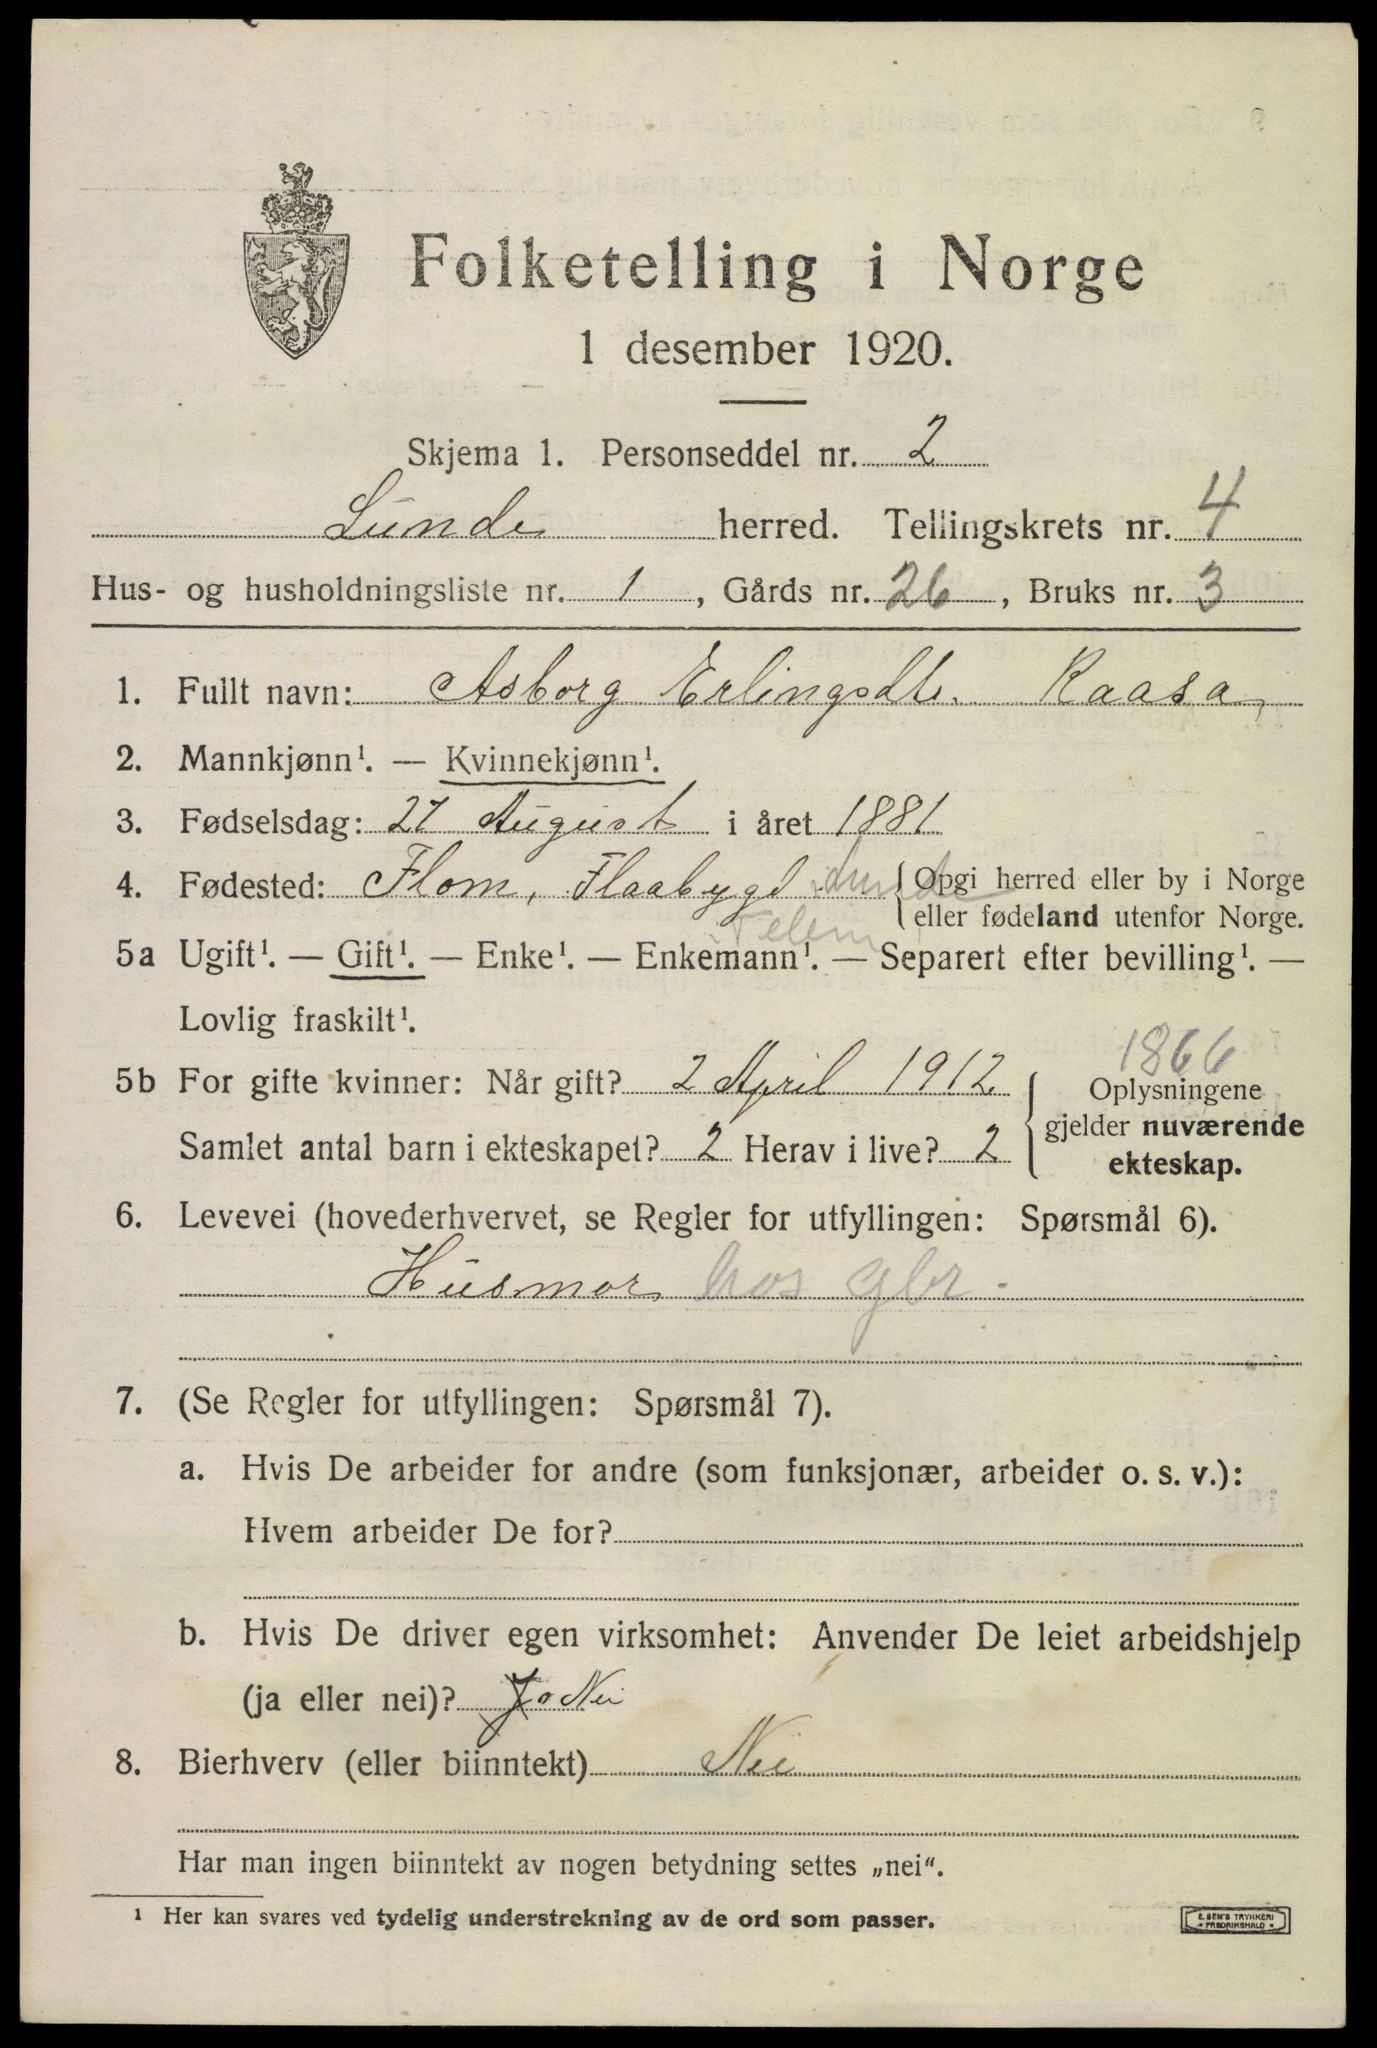 Folketelling i Norge
1 desember 1920.
Skjema 1. Personseddel nr. 2
Lunde herred. Tellingskrets nr. 4
Hus- og husholdningsliste nr. 1, Gårds nr. 26, Bruks nr. 3
1. Fullt navn: Asborg Erlingsdtr. Kaasa,
2. Mannkjønn¹. — Kvinnekjønn¹.
3. Fødselsdag: 27 August i året 1881
4. Fødested: Flom, Flaabygd Lunde {Opgi herred eller by i Norge
eller fødeland utenfor Norge.
Telem
5a Ugift¹. — Gift¹. — Enke¹. — Enkemann¹. — Separert efter bevilling¹. —
Lovlig fraskilt¹.
1866
5b For gifte kvinner: Når gift? 2 April 1912 {Oplysningene
gjelder nuværende
Samlet antal barn i ekteskapet? 2 Herav i live? 2 ekteskap.
6. Levevei (hovederhvervet, se Regler for utfyllingen: Spørsmål 6).
Husmor hos gbr.
7. (Se Regler for utfyllingen: Spørsmål 7).
a. Hvis De arbeider for andre (som funksjonær, arbeider o. s. v.):
Hvem arbeider De for?
b. Hvis De driver egen virksomhet: Anvender De leiet arbeidshjelp
(ja eller nei)? Ja Nei
8. Bierhverv (eller biinntekt) Nei
Har man ingen biinntekt av nogen betydning settes „nei“.
¹ Her kan svares ved tydelig understrekning av de ord som passer.
E. SEM'S TRYKKERI
FREDRIKSHALD